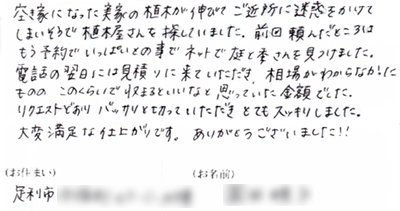 空き家になった実家の植木が伸びてご近所に迷惑をかけて
しまいそうで植木屋さんを探していました。前回頼んだところは
もう予約でいっぱいとの事でネットで庭と季さんを見つけました。
電話の翌日には見積りに来ていただき、相場がわからなかった
ものの このくらいで収まるといいなと思っていた金額でした。
リクエストどおりバッサリと切っていただき とてもスッキリしました。
大変満足な仕上がりです。ありがとうございました!!
(お住まい) (お名前)
足利市